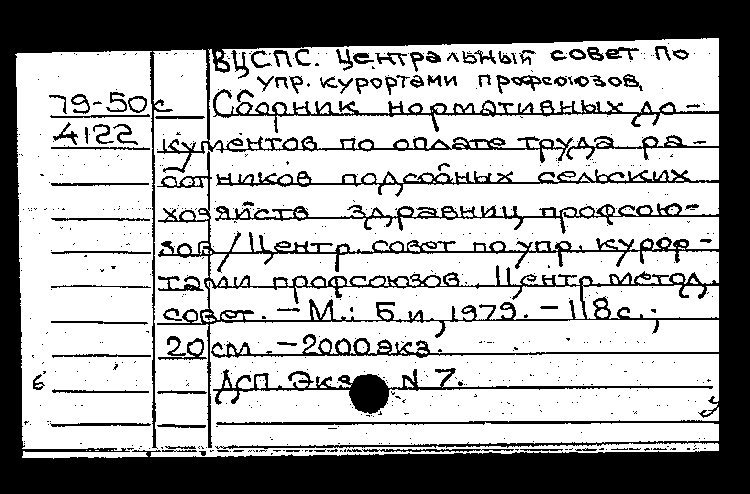 ВЦСПС. Центральный совет по
упр. курортами профсоюзов
79-50с Сборник нормативных до-
4122 кументов по оплате труда ра-
ботников подсобных сельских
хозяйств здравниц профсою-
зов / Центр. совет по упр. курор-
тами профсоюзов. Центр. метод.
совет. - М.: Б.и., 1979. - 118 с.;
20 см. - 2000 экз.
6 ДСП. Экз. N 7.